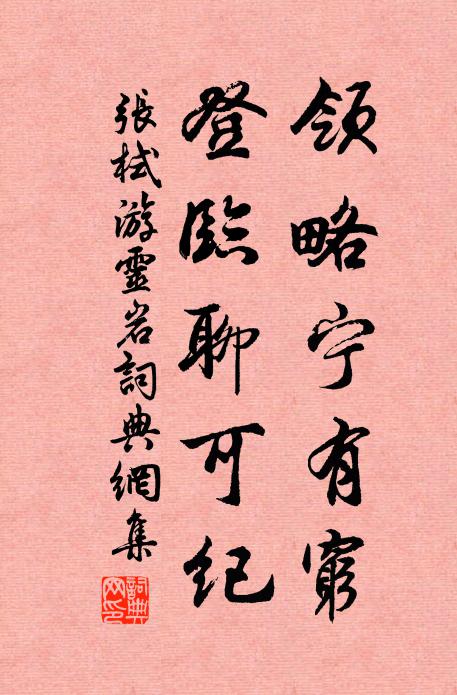 領略宁有窮
登臨聊可紀
張栻游靈岩詞典網集
詞典網印